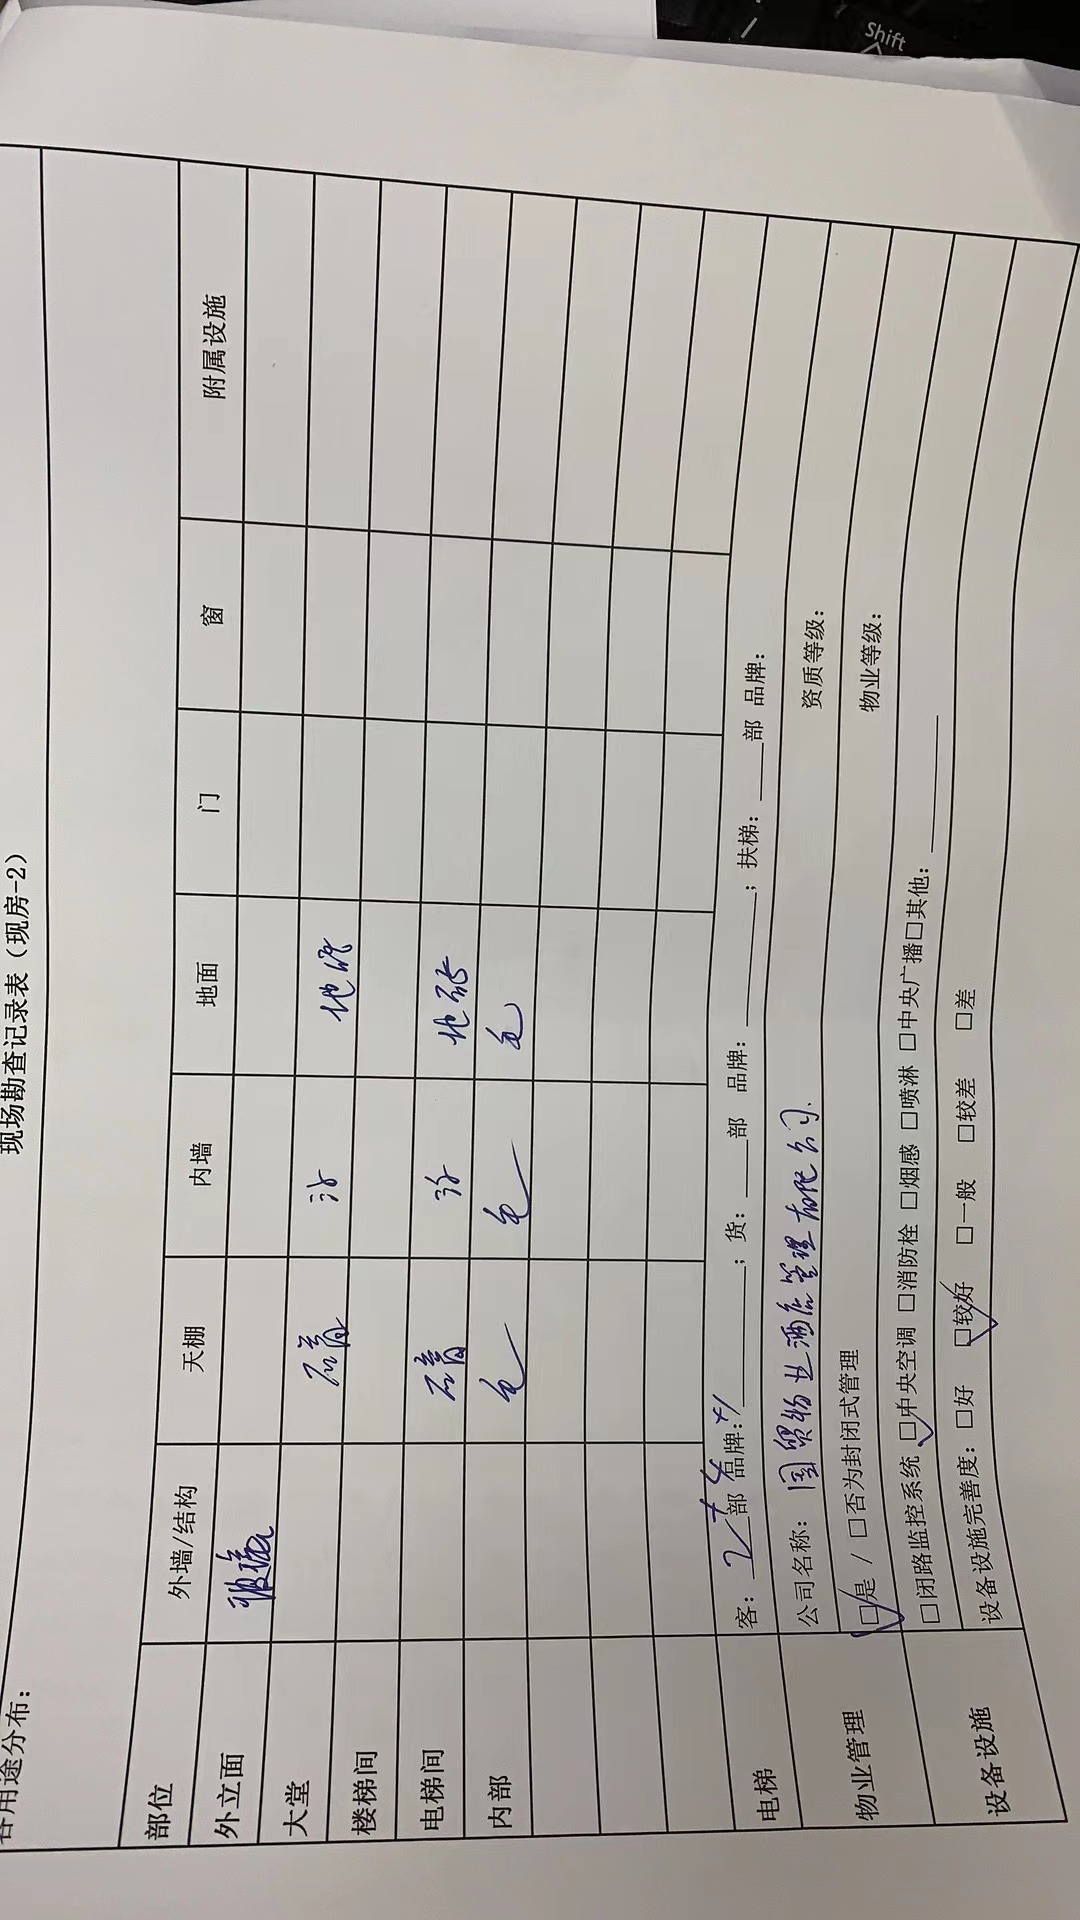 现场勘查记录表（现房-2）
各用途分布：
部位 外墙/结构 天棚 内墙 地面 门 窗 附属设施
外立面 玻璃
大堂 石膏 涂 地砖
楼梯间
电梯间 石膏 涂 地砖
内部 毛 毛 毛
电梯 客： 部 品牌： ；货： 部 品牌： ；扶梯： 部 品牌：
物业管理 公司名称：国贸物业酒店管理有限公司. 资质等级：
☑是 / □否为封闭式管理 物业等级：
设备设施 □闭路监控系统 ☑中央空调 □消防栓 □烟感 □喷淋 □中央广播□其他：
设备设施完善度：□好 ☑较好 □一般 □较差 □差
Shift